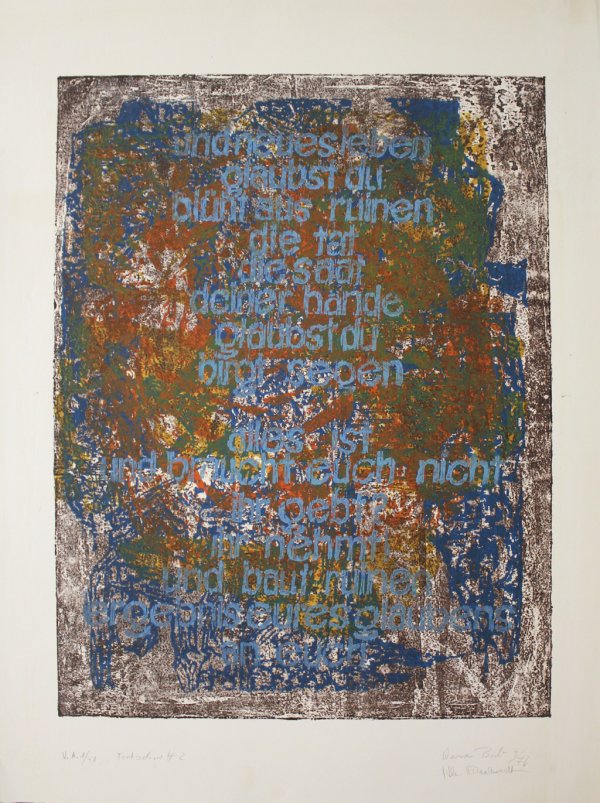 und neues leben
glaubst du
blüht aus ruinen
die tat
die saat
deiner hände
glaubst du
birgt segen
alles ist
und braucht euch nicht
ihr gebt?
ihr nehmt!
und baut ruinen
ergebnis eures glaubens
an euch